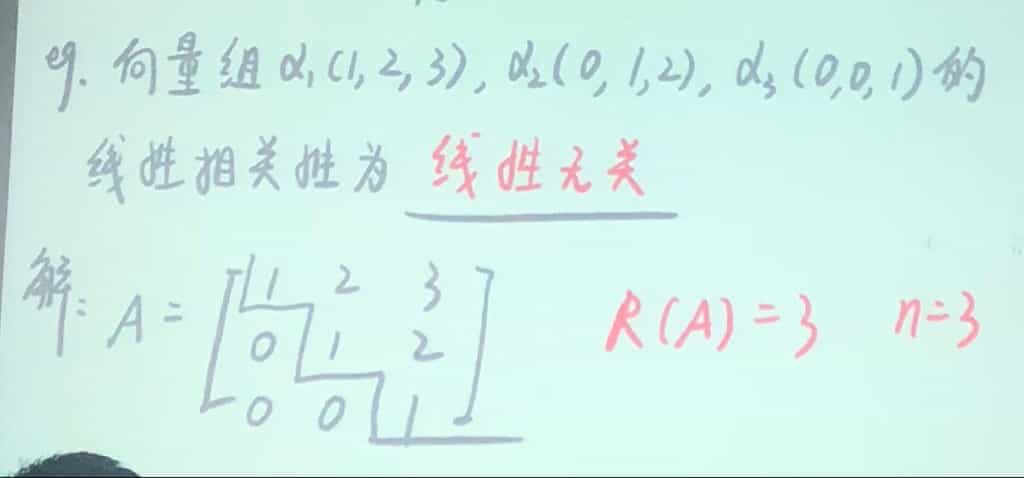 eg. 向量组 α₁(1,2,3), α₂(0,1,2), α₃(0,0,1)的
线性相关性为 线性无关
解: A = [1 2 3
0 1 2
0 0 1] R(A)=3 n=3